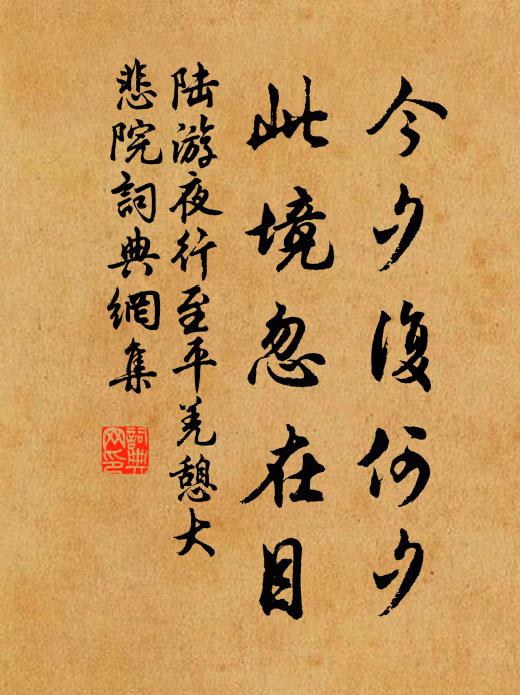 今夕復何夕
此境忽在目
陆游夜行至平羌憩大
悲院詞典網集
詞典
网印